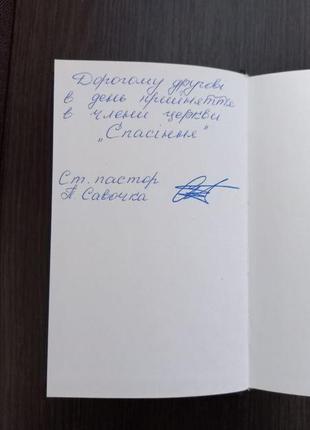 Дорогому другові
в день прийняття
в члени церкви
„Спасіння"
Ст. пастор
П. Савочка